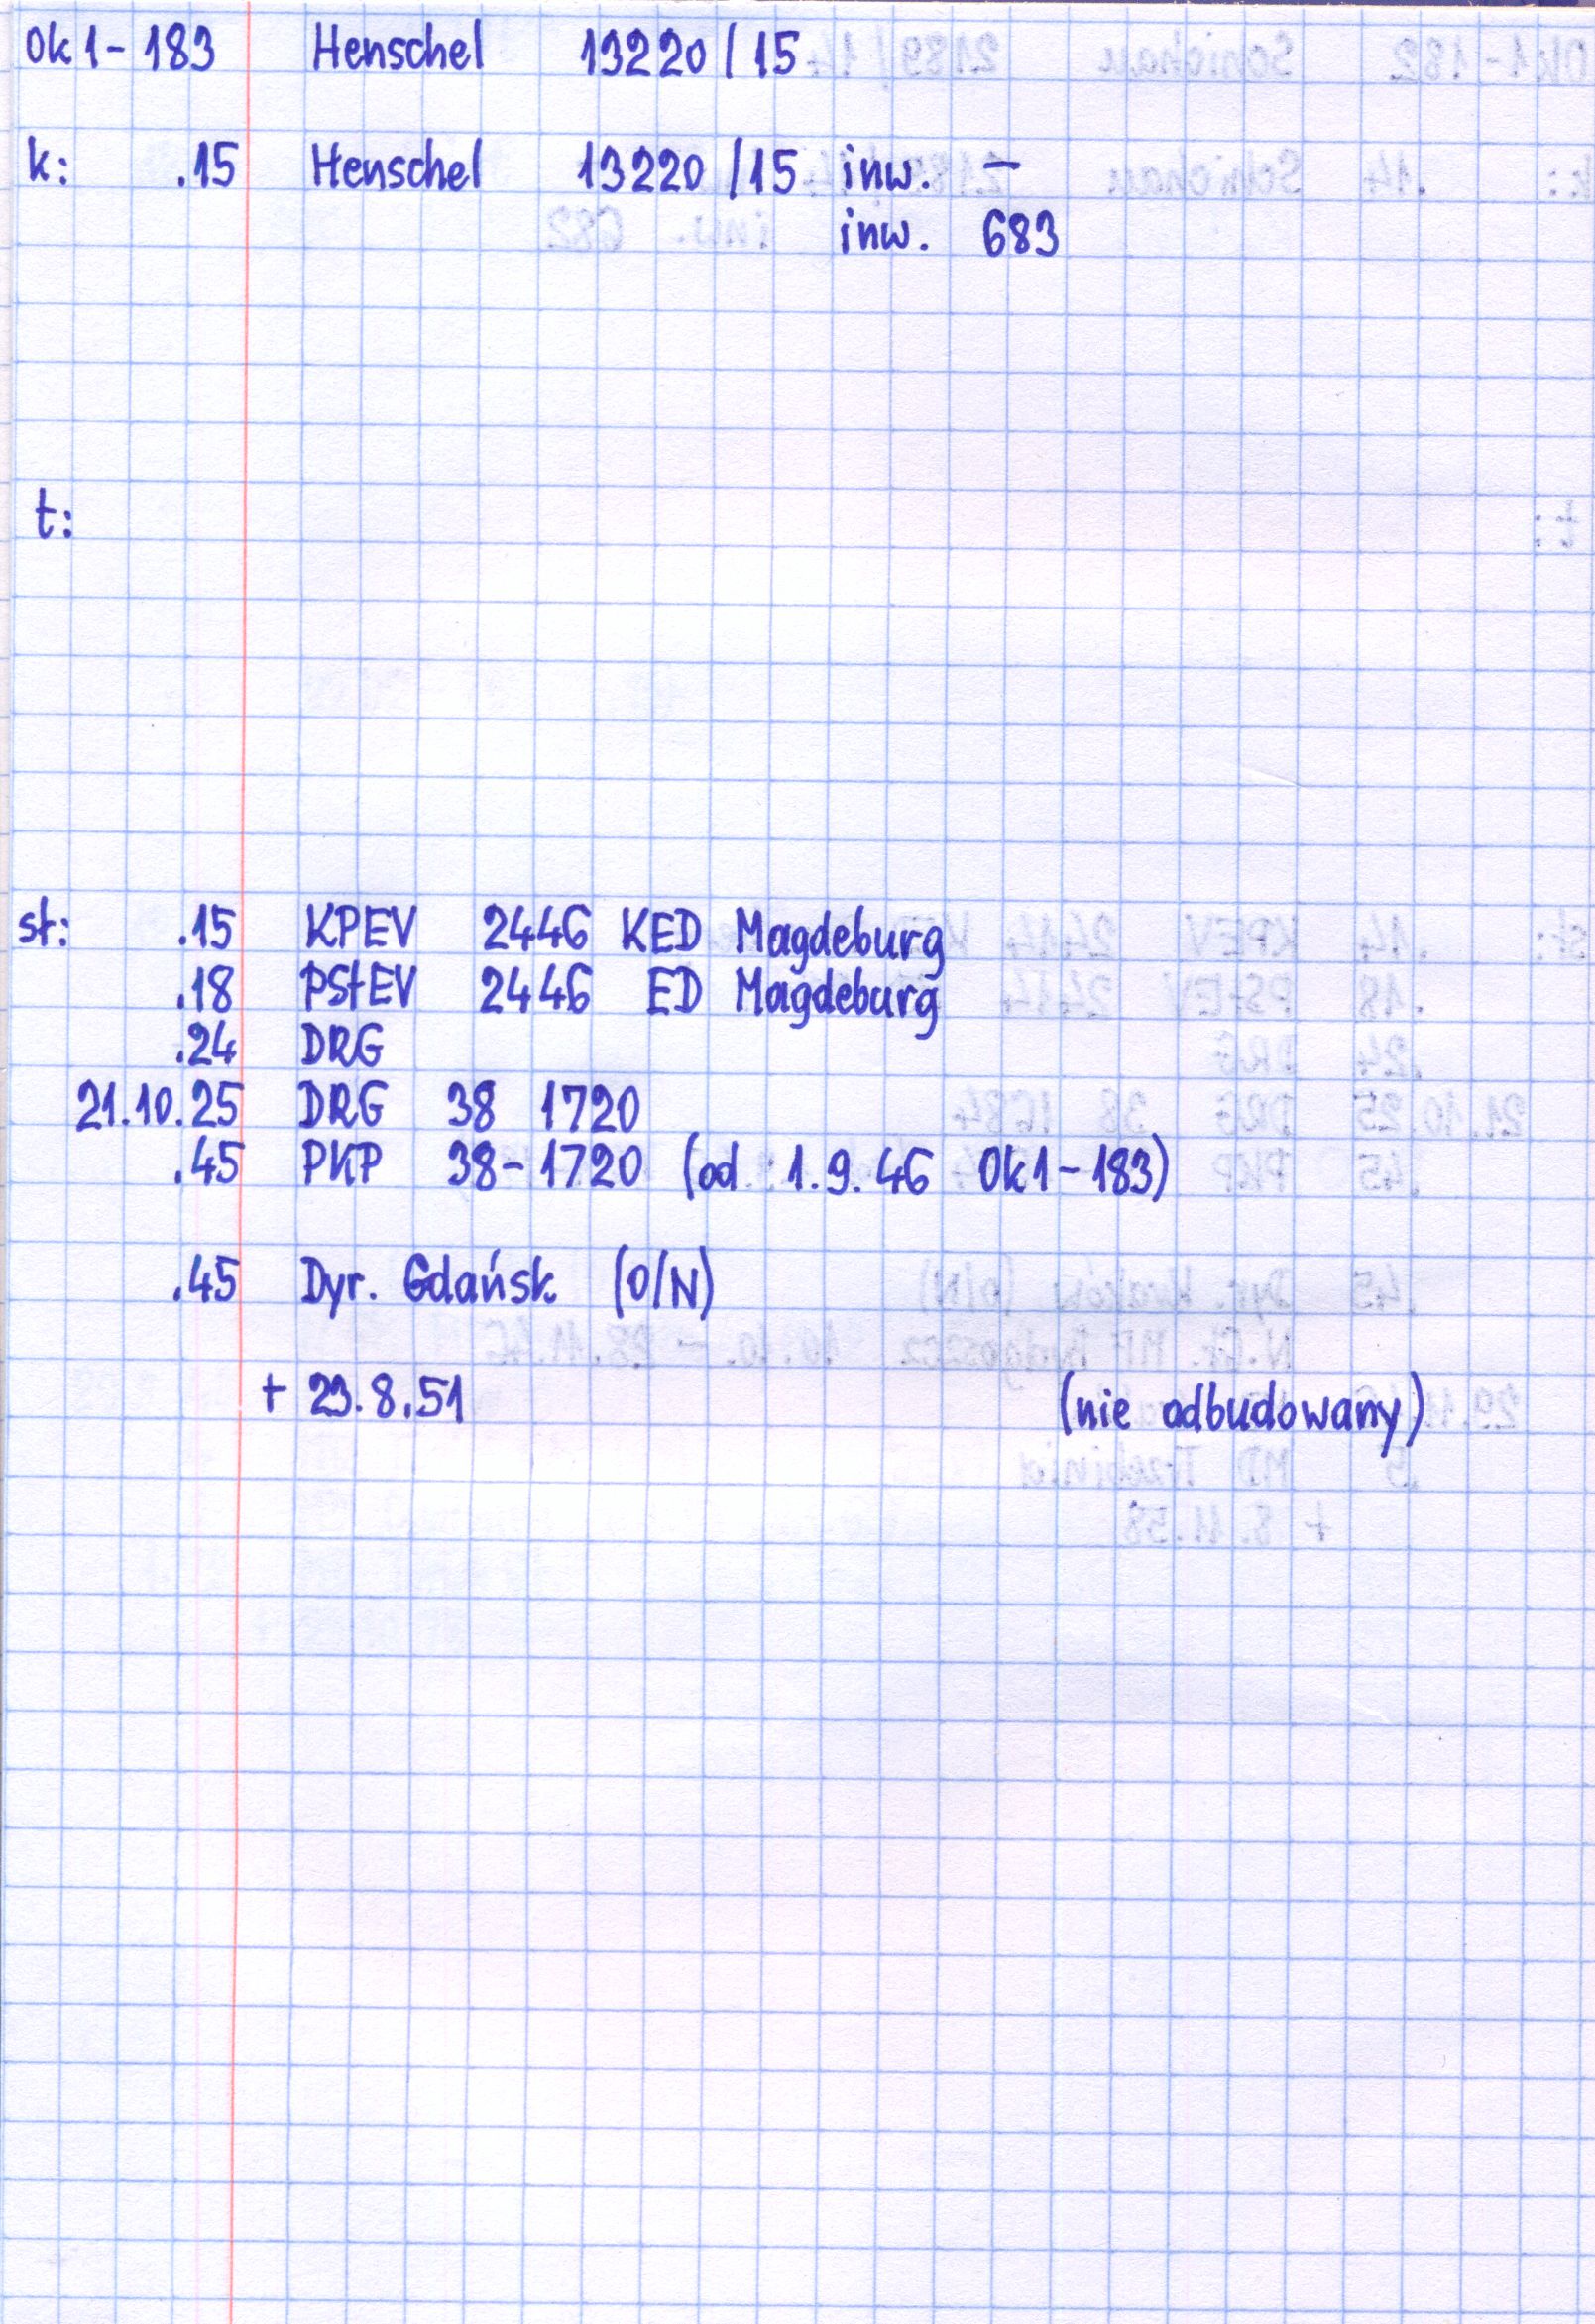 Ok1-183 Henschel 13220/15
k: .15 Henschel 13220/15 inw. –
inw. 683
t:
st: .15 KPEV 2446 KED Magdeburg
.18 PStEV 2446 ED Magdeburg
.24 DRG
21.10.25 DRG 38 1720
.45 PKP 38-1720 (od 1.9.46 Ok1-183)
.45 Dyr. Gdańsk (O/N)
+ 23.8.51 (nie odbudowany)